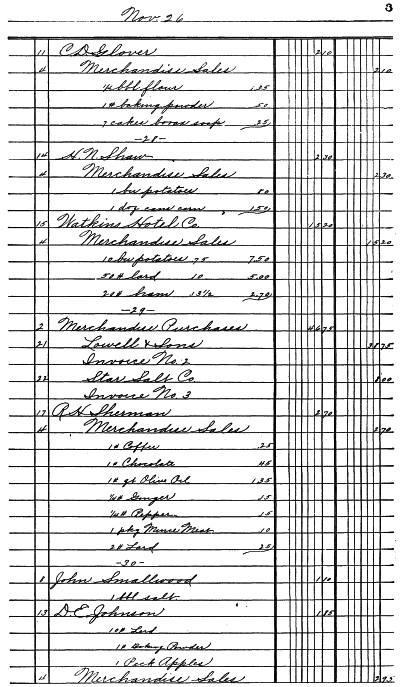 3
Nov. 26
11 C. D. Glover 2 10
4 Merchandise Sales 2 10
¼ bbl flour 1.35
1# baking powder 50
7 cakes borax soap 25
-28-
14 H. N. Shaw 2 30
4 Merchandise Sales 2 30
1 bu potatoes 80
1 doz cans corn 1.50
15 Watkins Hotel Co. 15 20
4 Merchandise Sales 15 20
10 bu potatoes 75 7.50
50# lard 10 5.00
20# ham 13½ 2.70
-29-
2 Merchandise Purchases 46 75
21 Lowell & Sons 38 75
Invoice No. 2
22 Star Salt Co. 8 00
Invoice No. 3
17 R. H. Sherman 2 70
4 Merchandise Sales 2 70
1# Coffee 25
1# Chocolate 45
1# qt Olive Oil 1.35
¼# Ginger 15
¼# Pepper 15
1 pkg Mince Meat 10
2# Lard 25
-30-
8 John Smallwood 1 10
1 bbl salt
13 D. E. Johnson 1 85
10# Lard
1# Baking Powder
1 Peck Apples
4 Merchandise Sales 2 95